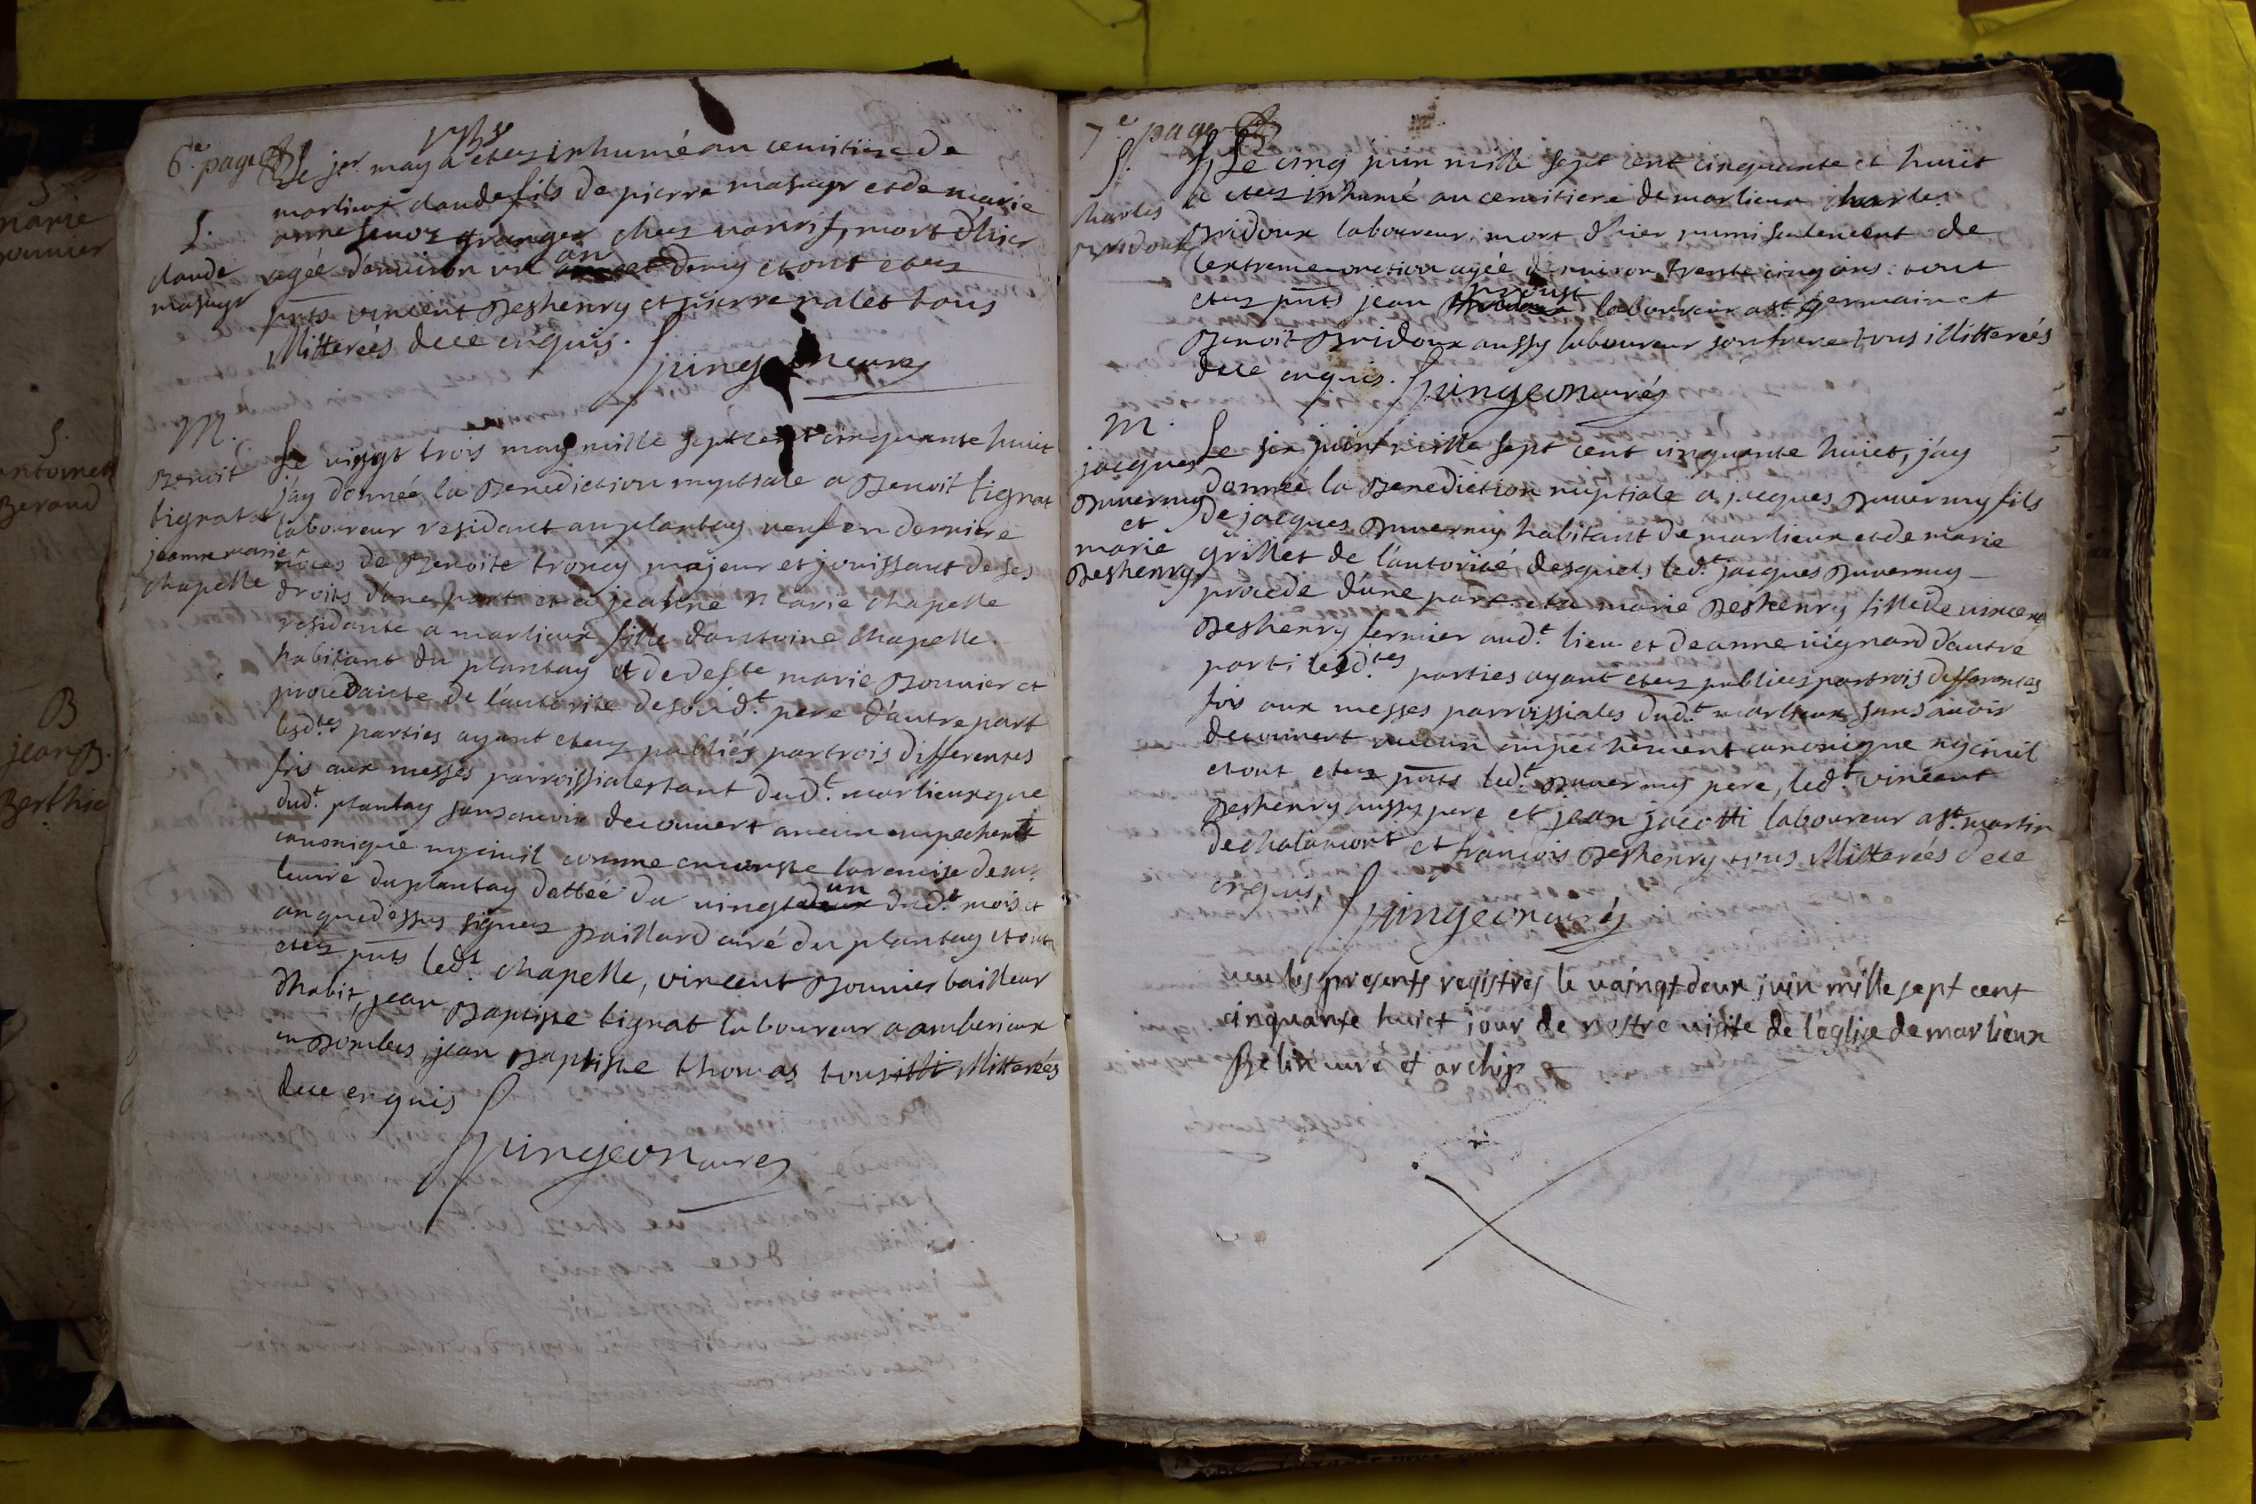 6.e page
Le jer may a etez inhumé au cemitiere de
marlieux claude fils de pierre masuyr et de marie
anne granger chez mort d'hier
S.
claude
masuyr
agée d'environ un an et demy et ont etez
pnts vincent Deshenry et pierre nalet tous
illitterées de ce enquis.
Spingeon curez
M.
Benoit
tignat et
jeanne marie
chapelle
Le vingt trois may mille sept cent cinquante huict
j'ay donnée la Benediction nuptiale a Benoit tignat
laboureur residant au plantay veuf en derniere
nôces de Benoite troncy majeur et jouissant de ses
droits d'une part et a jeanne Marie chapelle
residante a marlieux fille d'antoine chapelle
habitant du plantay et de defte marie Bonnier et
procedante de l'autorité de sond.t pere d'autre part
lesd.tes parties ayant etez publiés par trois differentes
fois aux messes parroissiales tant dud.t marlieux que
dud.t plantay sans avoir decouvert aucun empechemt
canonique ny civil comme conste la remise de mr
le curé du plantay dattée du vingt un dud.t mois et
an que dessus signez paillard curé du plantay et ont
etez pnts led.t chapelle, vincent Bonnier tailleur
d'habit, jean Baptiste tignat laboureur a amberieux
en Dombes, jean Baptiste thomas tous illitterées
de ce enquis
Spingeon curez
7.e page
S.
charles
Bridoux
Le cinq juin mille sept cent cinquante et huict
a etez inhumé au cemitiere de marlieux charles
Bridoux laboureur, mort d'hier muni seulement de
l'extreme onction agée d'environ trente cinq ans. et ont
etez pnts jean laboureur a st germain et
Benoit Bridoux aussy laboureur son frere tous illitterées
de ce enquis. Spingeon curés
M.
jacques
Duvernay
et
marie
Deshenry
Le six juin mille sept cent cinquante huict, j'ay
donnée la Benediction nuptiale a jacques Duvernay fils
de jacques Duvernay habitant de marlieux et de marie
grillet de l'autorité desquels led.t jacques Duvernay
procede d'une part et a marie Deshenry fille de vincent
Deshenry fermier aud.t lieu et de anne vignard d'autre
part; lesd.tes parties ayant etez publiez par trois differentes
fois aux messes parroissiales dud.t marlieux sans avoir
decouvert aucun empechement canonique ny civil
et ont etez pnts led.t Duvernay pere, led.t vincent
Deshenry aussy pere et jean jacotti laboureur a st martin
de chalamont et francois Deshenry tous illitterées de ce
enquis, Spingeon curés
veu les presents registres le vaingt deux juin mille sept cent
cinquante huict jour de nostre visite de l'eglise de marlieux
Belin curé et archip